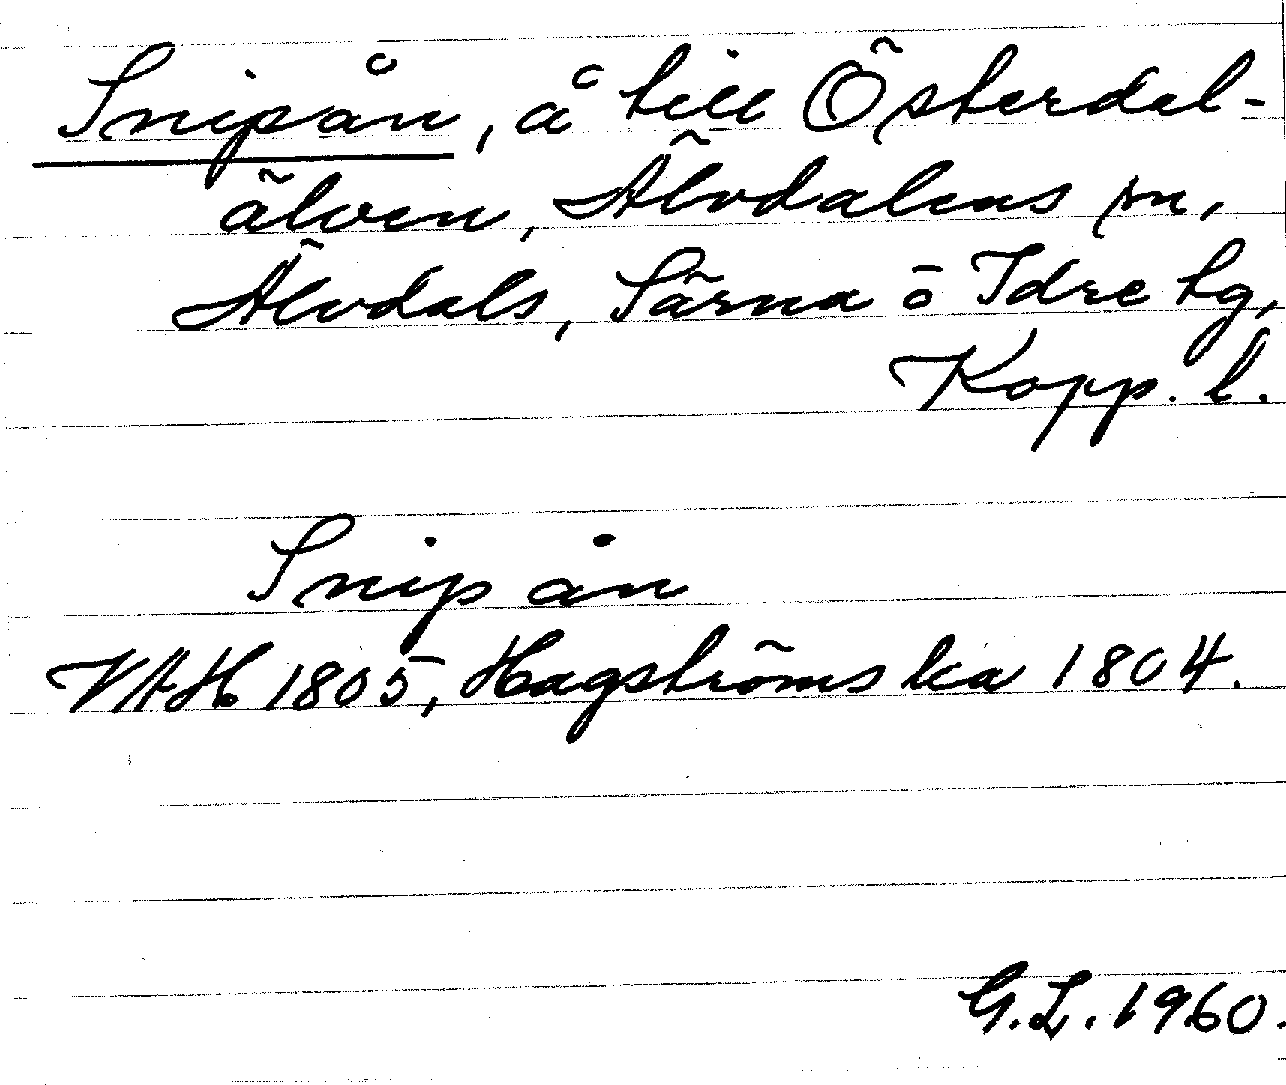 Snipån, å till Österdal-
älven, Älvdalens sn,
Älvdals, Särna o Idre tg,
Kopp. l.
Snipån
VAH 1805, Hagströms ka 1804.
G.L. 1960.